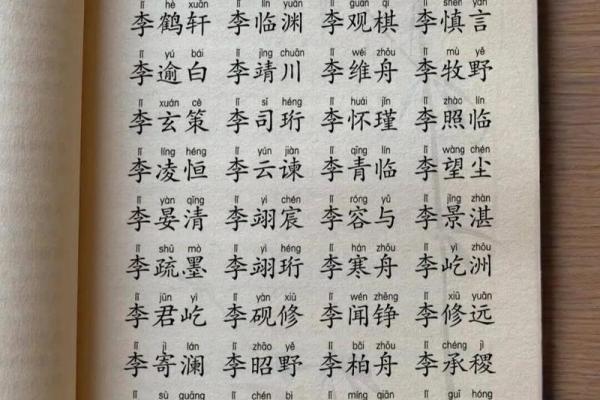 lǐ hè xuān lǐ lín yuān lǐ guān qí lǐ shèn yán
李鹤轩 李临渊 李观棋 李慎言
lǐ yú bái lǐ jìng chuān lǐ wéi zhōu lǐ mù yě
李逾白 李靖川 李维舟 李牧野
lǐ xuán cè lǐ sī héng lǐ huái jǐn lǐ zhào lín
李玄策 李司珩 李怀瑾 李照临
lǐ líng héng lǐ yún jiàn lǐ qīng lín lǐ wàng chén
李凌恒 李云谏 李青临 李望尘
lǐ yàn qīng lǐ yì chén lǐ róng yǔ lǐ jǐng zhàn
李晏清 李翊宸 李容与 李景湛
lǐ shū mò lǐ yì héng lǐ hán zhōu lǐ yì zhōu
李疏墨 李翊珩 李寒舟 李屹洲
lǐ jūn yì lǐ yàn xiū lǐ wén zhēng lǐ xiū yuǎn
李君屹 李砚修 李闻铮 李修远
lǐ jì lán lǐ zhāo yě lǐ bǎi zhōu lǐ chéng jì
李寄澜 李昭野 李柏舟 李承稷
lǐ sù guāng lǐ chén bì lǐ míng qiān lǐ guī hóng